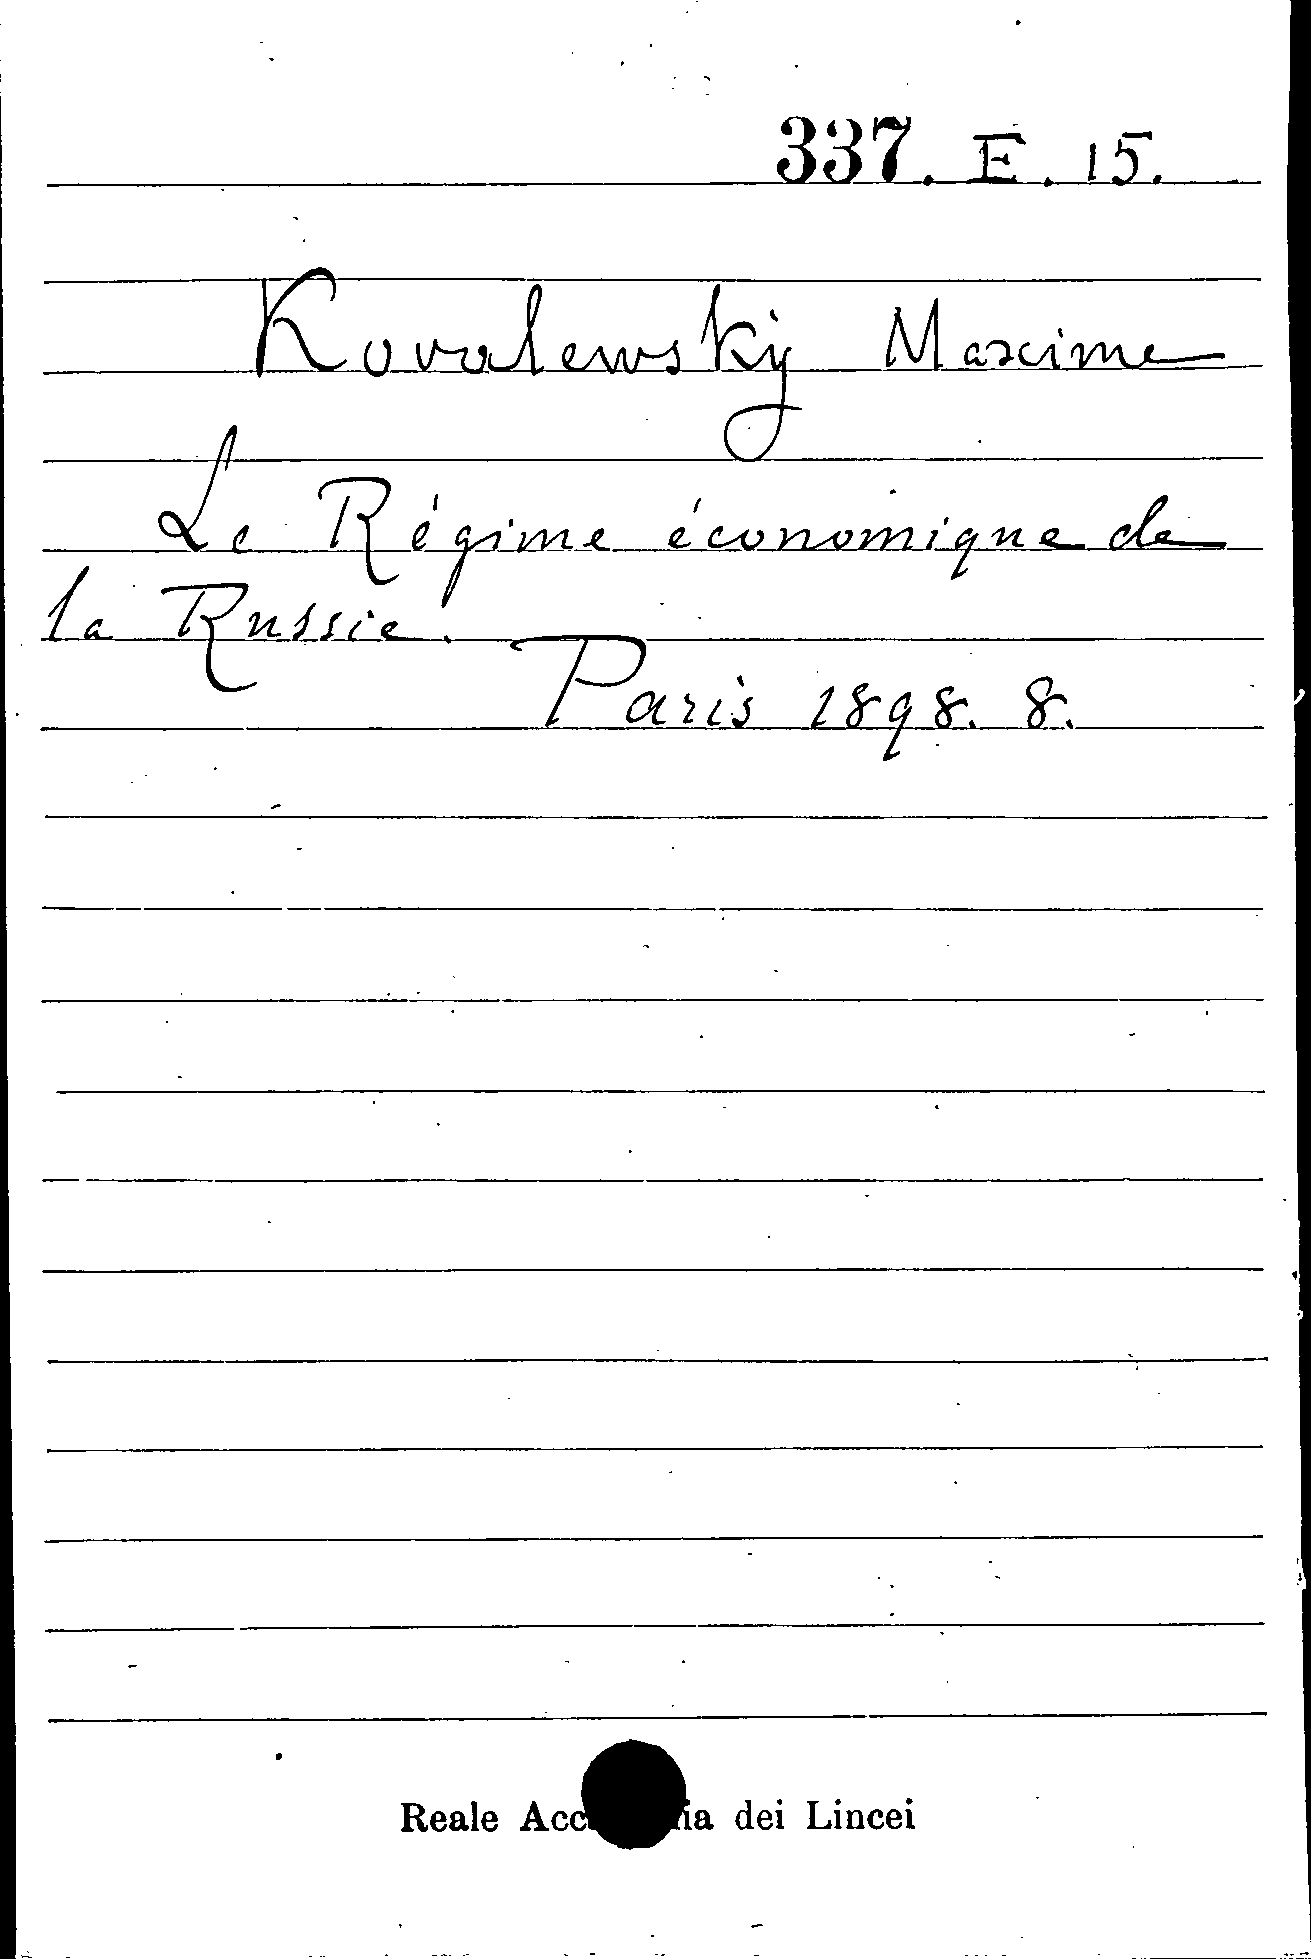 337. E. 15.
Kovalewsky Maxime
Le Régime économique de
la Russie.
Paris 1898. 8.
Reale Acc ia dei Lincei